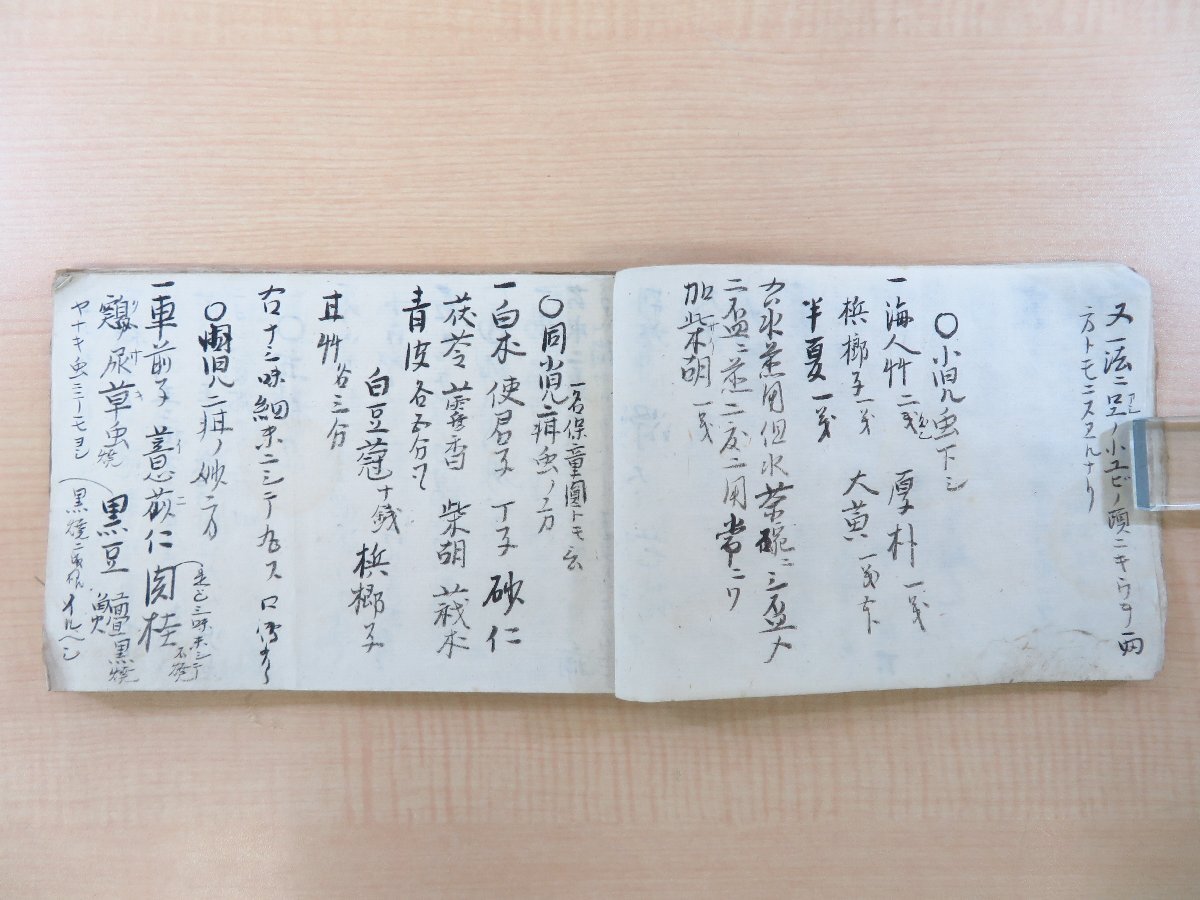 又一法ニ足ノ小ユビノ頭ニキウヲ両
方トモニスヱルナリ
〇小児虫下シ
一海人艸二戔 厚朴一戔
檳榔子一戔 大黄一戔
半夏一戔
右水煎用但水茶碗ニ三盃入
二盃ニ煎二度ニ用常ニハ
加柴胡一戔
〇同小児疳虫ノ方
一名保童圓トモ云
一白朮 使君子 丁子 砂仁
茯苓 霍香 柴胡 莪朮
青皮各五分
白豆蔲十錢 檳榔子
甘艸各三分
右十三味細末ニシテ丸ス口傳
〇小児疳ノ妙方
一車前子 薏苡仁 肉桂
是ヒ三味末シテ
鷄尿草虫焼 黒豆 鱣黒焼
ヤナキ虫ニーモヨシ
黒焼ニ イルヘシ